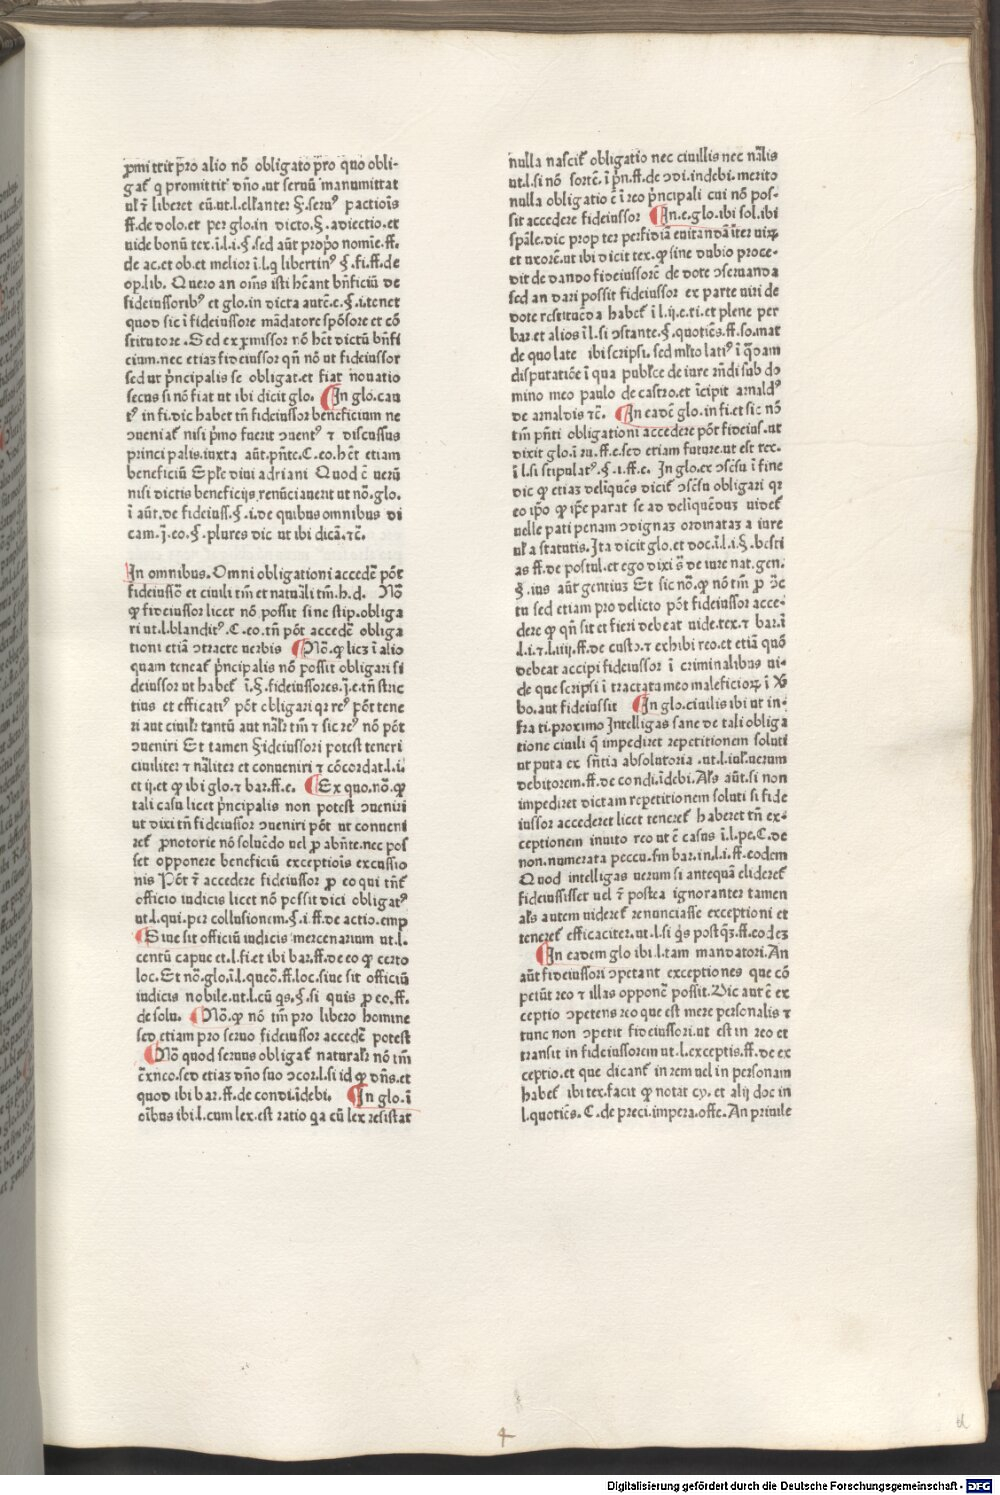 ꝓmittit p̄ro alio nō obligato p̄ro quo obli-
gat᷑ q promittit dn̄o.ut seruū manumittat
ul̓ t̄ liberet eū.ut.l.eleganter §.seruꝰ pactiōis
ff.de dolo.et per glo.in dicto.§.adiectio.et
uide bonū tex.ī.l.i.§.sed aūt prop̓o nomīe.ff.
de ac.et ob.et melior ī.l.q libertinꝰ §.fi.ff.de
op.lib. Quero an om̄s isti hēant bn̄ficiū de
fideiussoribꝰ et glo.in dicta autē.e.§.i.tenet
quod sic ī fideiussore mādatore spōsore et cō
stitutore.Sed exꝓmissor nō hēt dictū bn̄fi
cium.nec etiaꝫ fideiussor qn̄ nō ut fideiussor
sed ut p̓ncipalis se obligat.et fiat nouatio
secus si nō fiat ut ibi dicit glo. In glo.cau
tꝰ in fi.dic habet tn̄ fideiussor beneficium ne
ↄueniat᷑ nisi p̓mo fuerit ↄuentꝰ ⁊ discussus
principalis.iuxta aūt.pn̄te.C.eo.hēt etiam
beneficiū Epl̓e diui adriani Quod ē uerū
nisi dictis beneficijs renūciauerit ut nō.glo.
ī aūt.de fideiuss.§.i.de quibus omnibus di
cam.j.eo.§.plures dic ut ibi dicā.⁊c̄.
In omnibus.Omni obligationi accedē pōt
fideiussō et ciuili tm̄ et natuāli tm̄.h.d. Nō
ꝙ fideiussor licet nō possit sine stip.obliga
ri ut.l.blanditꝰ.C.eo.tn̄ pōt accedē obliga
tioni etiā ↄtracte uerbis Nō.ꝙ licꝫ ī alio
quam teneat᷑ p̓ncipalis nō possit obligari fi
deiussor ut habet᷑ ī.§.fideiussores.j.e.tn̄ stric
tius et efficatiꝰ pōt obligari qr reꝰ pōt tene
ri aut ciuil̓r tantū aut nal̓r tm̄ ⁊ sic reꝰ nō pōt
ↄueniri Et tamen fideiussori potest teneri
ciuiliter ⁊ nāliter et conueniri ⁊ cōcordat.l.i.
et ij.et ꝙ ibi glo.⁊ bar.ff.e. Ex quo.nō.ꝙ
tali casu licet p̓ncipalis non potest ↄueniri
ut dixi tn̄ fideiussor ↄueniri pōt ut conueni
ret᷑ ꝓnotorie nō soluēdo uel ꝓ abn̄te.nec pos
set opponere beneficiū exceptiōis excussio
nis Pōt t̄ accedere fideiussor ꝓ eo qui tn̄t᷑
officio iudicis licet nō possit dici obligatꝰ
ut.l.qui.per collusionem.§.i ff.de actiō.emp
Siue sit officiū iudicis mercenarium ut.l.
centū capue et.l.fi.et ibi bar.ff.de eo ꝙ certo
loc.Et nō.glo.ī.l.queō.ff.loc.siue sit officiū
iudicis nobile.ut.l.cū qs.§.si quis ꝓ eo.ff.
de solu. Nō.ꝙ nō tm̄ pro libero homine
sed etiam pro seruo fideiussor accedē potest
Nō quod seruus obligat᷑ natural̓r nō tm̄
ēxneo.sed etiaꝫ dn̄o suo ↄcor.l.si id ꝙ dn̄s.et
quod ibi bar.ff.de condi.īdebi. In glo.ī
oībus ibi.l.cum lex.est ratio qa cū lex resistat
nulla nascit᷑ obligatio nec ciuillis nec nālis
ut.l.si nō sortē.ī p̓n.ff.de ↄdi.indebi.merito
nulla obligatio ē ī reo p̓ncipali cui nō pos-
sit accedere fideiussor In.e.glo.ibi sol.ibi
spāle.dic propter perfidiā euitandā īter uiꝝ
et uxorē.ut ibi dicit tex.ꝙ sine dubio proce-
dit de dando fideiussorē de dote ↄseruanda
sed an dari possit fideiussor ex parte uiri de
dote restituēda habet᷑ ī l.ij.e.ti.et plene per
bar.et alios ī l.si ↄstante.§.quotiēs.ff.so.mat
de quo late ibi scripsi.sed ml̓to latiꝰ ī qdam
disputatiōe ī qua publ̓ce de iure rn̄di sub do
mino meo paulo de castro.et īcipit arnaldꝰ
de arnaldis ⁊c̄. In eadē glo.in fi.et sic nō
tm̄ pn̄ti obligationi accedere pōt fideius.ut
dixit glo.ī ru.ff.e.sed etiam future.ut est tex.
ī l.si stipulatꝰ.§.i.ff.e. In glo.ex ↄsēsu ī fine
dic ꝙ etiaꝫ delīquēs dicit᷑ ↄsēsu obligari qr
eo ip̄o ꝙ ip̄e parat se ad delīquēduꝫ uidet᷑
uelle pati penam ↄdignaꝫ ordinataꝫ a iure
ul̓ a statutis.Ita dicit glo.et doc.ī.l.i.§.besti
as ff.de postul.et ego dixi s̄ de iure nat.gen.
§.ius aūt gentiuꝫ Et sic nō.ꝙ nō tm̄ ꝓ ↄ̄c
tu sed etiam pro delicto pōt fideiussor acce-
dere ꝙ qn̄ sit et fieri debeat uide.tex.⁊ bar.ī
l.i.⁊.l.iiij.ff.de custo.⁊ exhibi reo.et etiā quō
debeat accipi fideiussor ī criminalibus ui-
de que scripsi ī tractatu meo maleficioꝝ ī ꝟ
bo.aut fideiussit In glo.ciuilis ibi ut in-
fra ti.proximo Intelligas sane de tali obliga
tione ciuili q̄ impediret repetitionem soluti
ut puta ex sn̄tia absolutoria .ut.l.iul̓.uerum
debitorem.ff.de condi.īdebi.Al̓s aūt.si non
impediret dictam repetitionem soluti si fide
iussor accederet licet teneret᷑ haberet tn̄ ex-
ceptionem inuito reo ut ē casus ī.l.pe.C.de
non.numerata peccu.fm bar.in.l.i.ff.eodem
Quod intelligas uerum si antequā elideret᷑
fideiussisset uel t̄ postea ignoranter tamen
al̓s autem uideret᷑ renunciasse exceptioni et
teneret᷑ efficaciter.ut.l.si qs postqꝫ.ff.eodeꝫ
In eadem glo ibi.l.tam mandatori.An
aūt fideiussori ↄpetant exceptiones que cō
petūt reo ⁊ illas opponē possit.Dic aut ē ex
ceptio ↄpetens reo que est mere personalis ⁊
tunc non ↄpetit fideiussori.ut est in reo et
transit in fideiussorem ut.l.exceptis.ff.de ex
ceptio.et que dicant᷑ in rem uel in personam
habet᷑ ibi tex.facit ꝙ notat cy.et alij doc in
l.quotiēs.C.de preci.impera.offe.An priuile
4
d
Digitalisierung gefördert durch die Deutsche Forschungsgemeinschaft - DFG